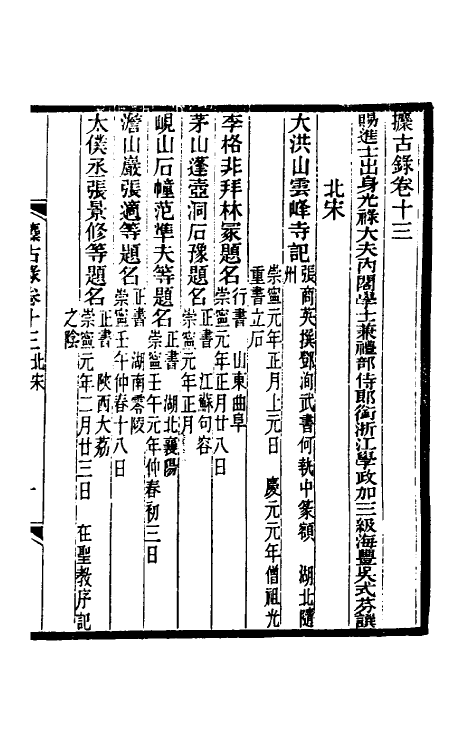 攈古錄卷十三
賜進士出身光祿大夫內閣學士兼禮部侍郎銜浙江學政加三級海豐吳式芬譔
北宋
大洪山雲峰寺記 張商英撰鄧洵武書何執中篆額 湖北隨
州
崇寧元年正月上元日 慶元元年僧祖光
重書立石
李格非拜林冢題名 行書 山東曲阜
崇寧元年正月廿八日
茅山蓬壺洞石豫題名 正書 江蘇句容
崇寧元年正月
峴山石幢范埻夫等題名 正書 湖北襄陽
崇寧壬午元年仲春初三日
澹山巖張適等題名 正書 湖南零陵
崇寧壬午仲春十八日
太僕丞張景修等題名 正書 陝西大荔
崇寧元年二月廿三日 在聖教序記
之陰
攈古錄卷十三 北宋 一